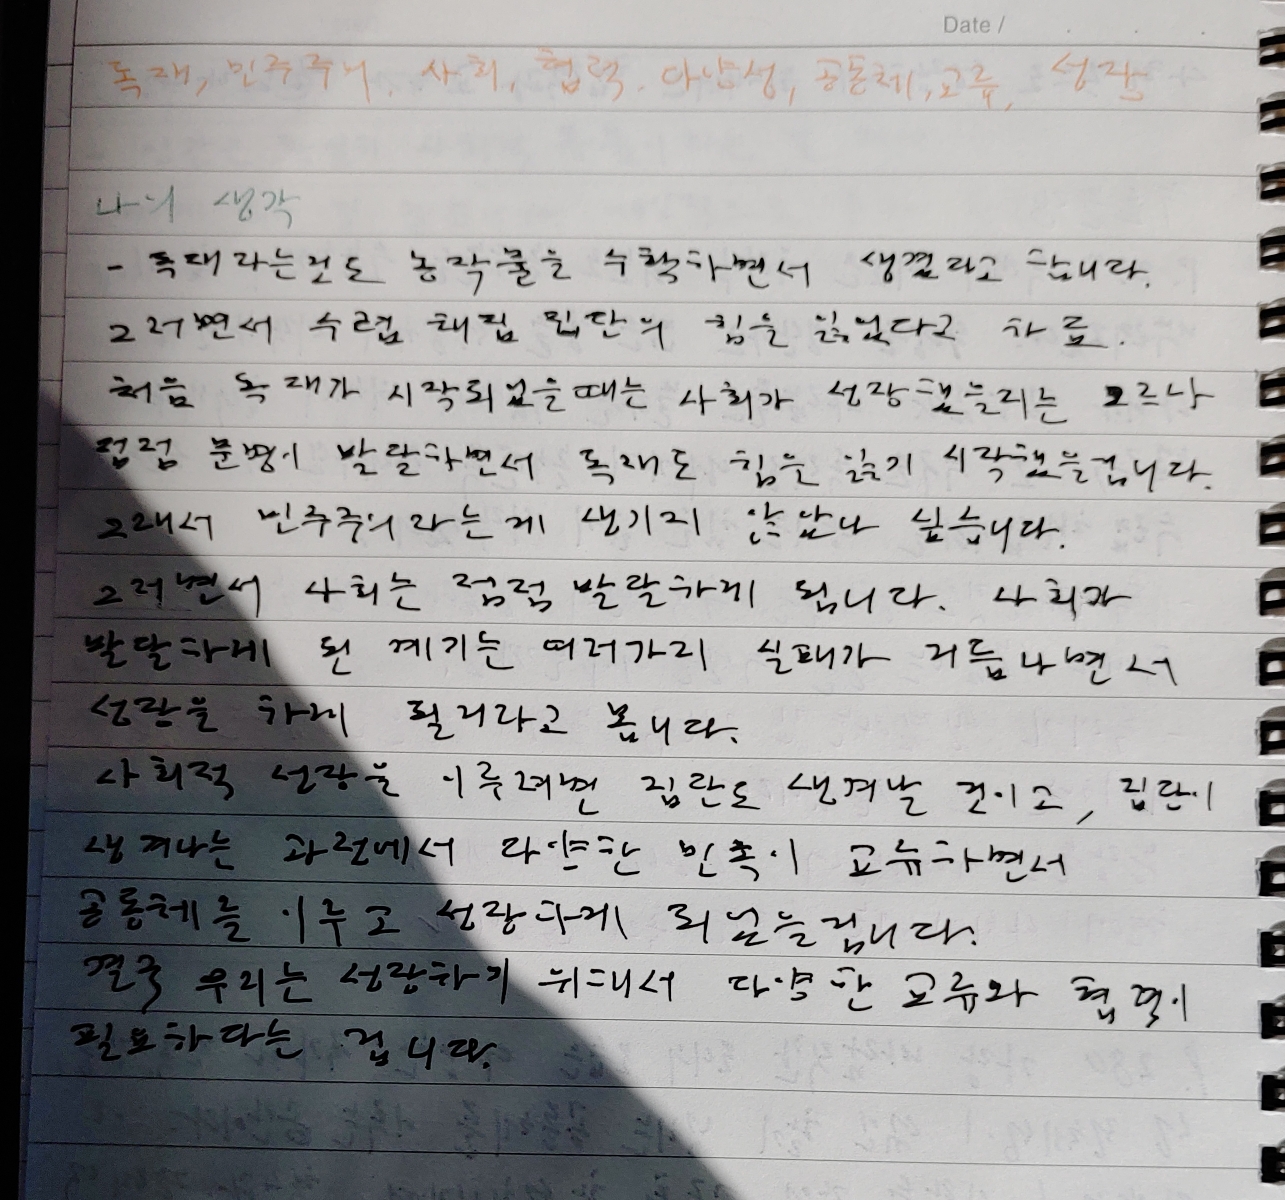 Date /
독재, 민주주의, 사회, 협력, 다양성, 공동체, 교류, 성장
나의 생각
- 독재라는것도 농작물을 수확하면서 생겼다고 합니다.
그러면서 수렵 채집 집단의 힘을 잃었다고 하죠.
처음 독재가 시작되었을때는 사회가 성장했을지는 모르나
점점 문명이 발달하면서 독재도 힘을 잃기 시작했을겁니다.
그래서 민주주의라는게 생기지 않았나 싶습니다.
그러면서 사회는 점점 발달하게 됩니다. 사회가
발달하게 된 계기는 여러가지 실패가 거듭나면서
성장을 하게 된거라고 봅니다.
사회적 성장을 이루려면 집단도 생겨날 것이고, 집단이
생겨나는 과정에서 다양한 민족이 교류하면서
공동체를 이루고 성장하게 되었을겁니다.
결국 우리는 성장하기 위해서 다양한 교류와 협력이
필요하다는 겁니다.